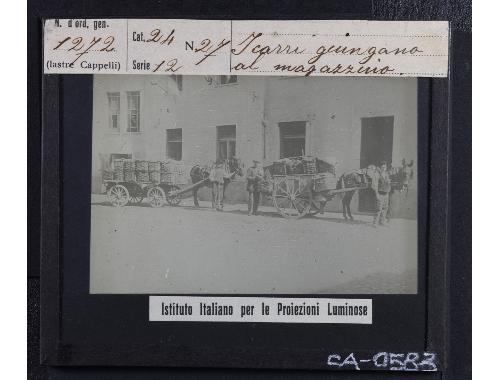 N. d'ord. gen. Cat. 24 N. 27 I carri giungano
1272 al magazzino
(lastre Cappelli) Serie 12
Istituto Italiano per le Proiezioni Luminose
CA-0583